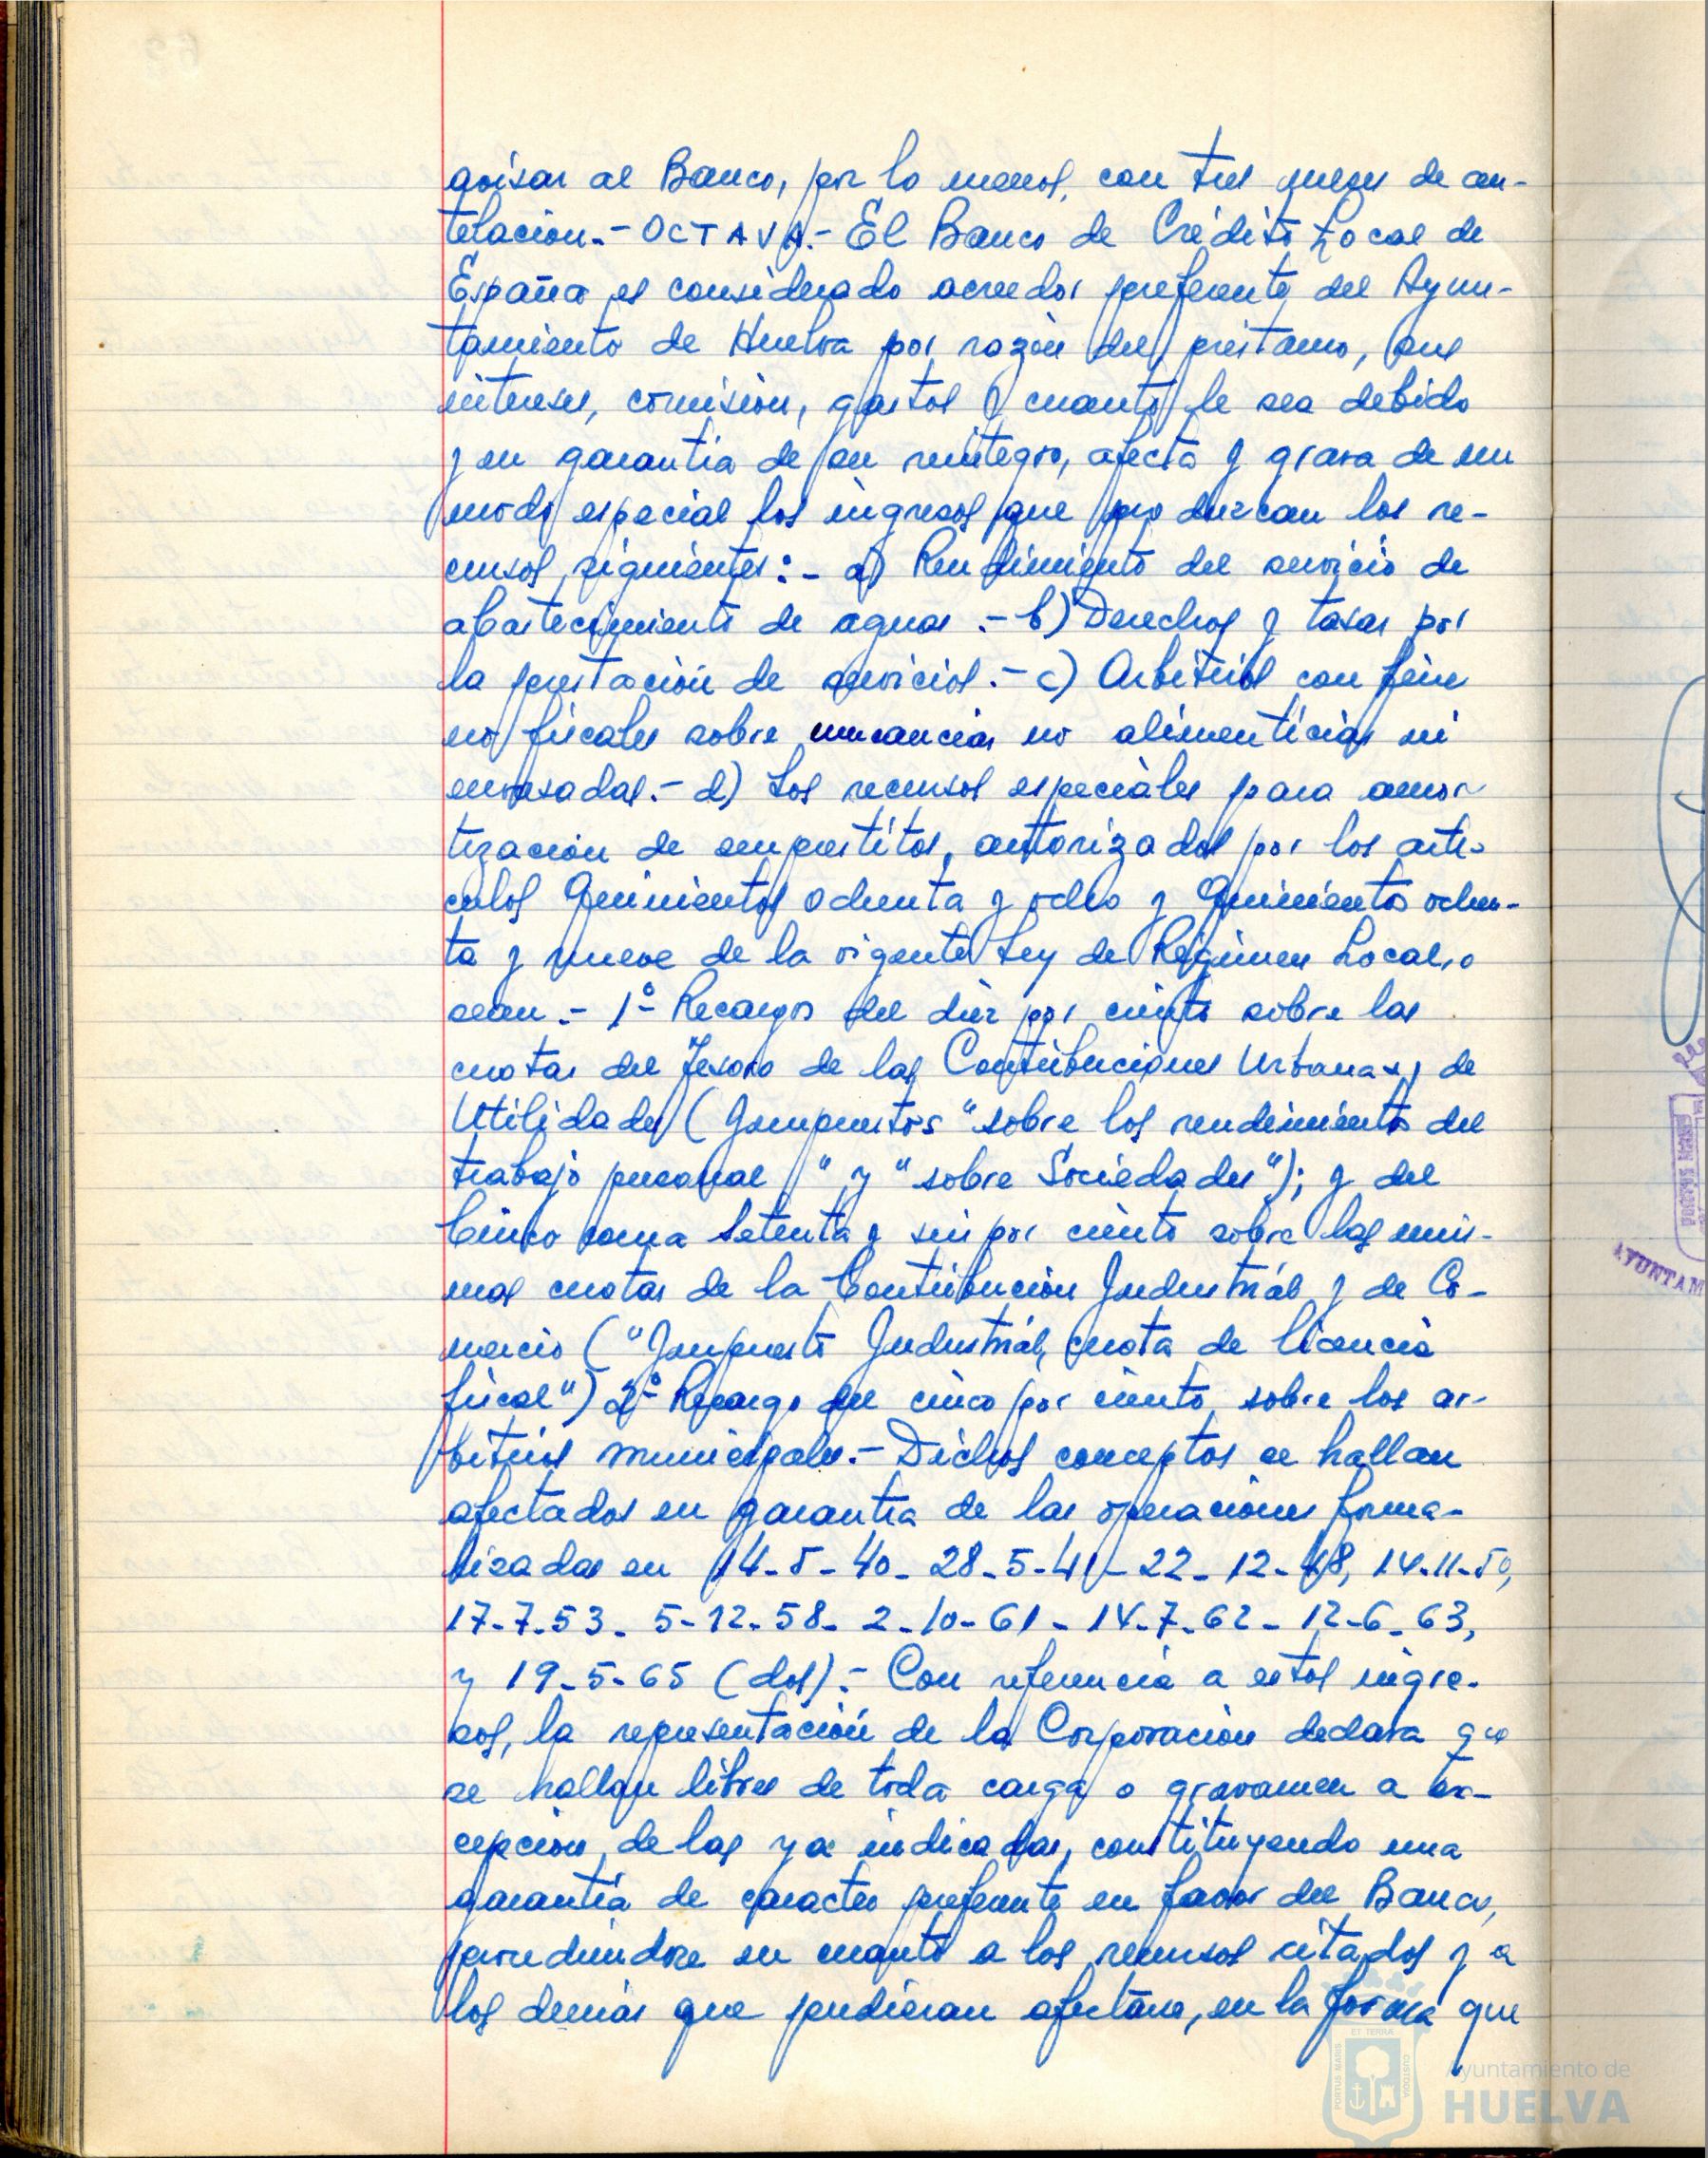 avisar al Banco, por lo menos, con tres meses de an-
telación.- OCTAVA.- El Banco de Crédito Local de
España es considerado acreedor preferente del Ayun-
tamiento de Huelva por razón del préstamo, sus
intereses, comisión, gastos y cuanto le sea debido
y en garantía de su reintegro, afecta y grava de un
modo especial los ingresos que produzcan los re-
cursos siguientes:- a) Rendimiento del servicio de
abastecimiento de aguas.- b) Derechos y tasas por
la prestación de servicios.- c) Arbitrios con fines
no fiscales sobre mercancías no alimenticias ni
envasadas.- d) Los recursos especiales para amor-
tización de empréstitos, autorizados por los artí-
culos Quinientos ochenta y ocho y Quinientos ochen-
ta y nueve de la vigente Ley de Régimen Local, o
sean.- 1º- Recargo del diez por ciento sobre las
cuotas del Tesoro de las Contribuciones Urbana y de
Utilidades (Impuestos "sobre los rendimientos del
trabajo personal" y "sobre Sociedades"); y del
Cinco coma Setenta y seis por ciento sobre las mis-
mas cuotas de la Contribución Industrial y de Co-
mercio ("Impuesto Industrial, cuota de licencia
fiscal") 2º- Recargo del cinco por ciento sobre los ar-
bitrios municipales.- Dichos conceptos se hallan
afectados en garantía de las operaciones forma-
lizadas en 14-5-40- 28-5-41- 22-12-48, 14-11-50,
17-7-53- 5-12-58- 2-10-61- 14-7-62- 12-6-63,
y 19-5-65 (dos).- Con referencia a estos ingre-
sos, la representación de la Corporación declara que
se hallan libres de toda carga o gravamen a ex-
cepción de las ya indicadas, constituyendo una
garantía de caracter preferente en favor del Banco,
procediendose en cuanto a los recursos citados y a
los demás que pudieran afectarse, en la forma que
AYUNTAM
Ayuntamiento de
HUELVA